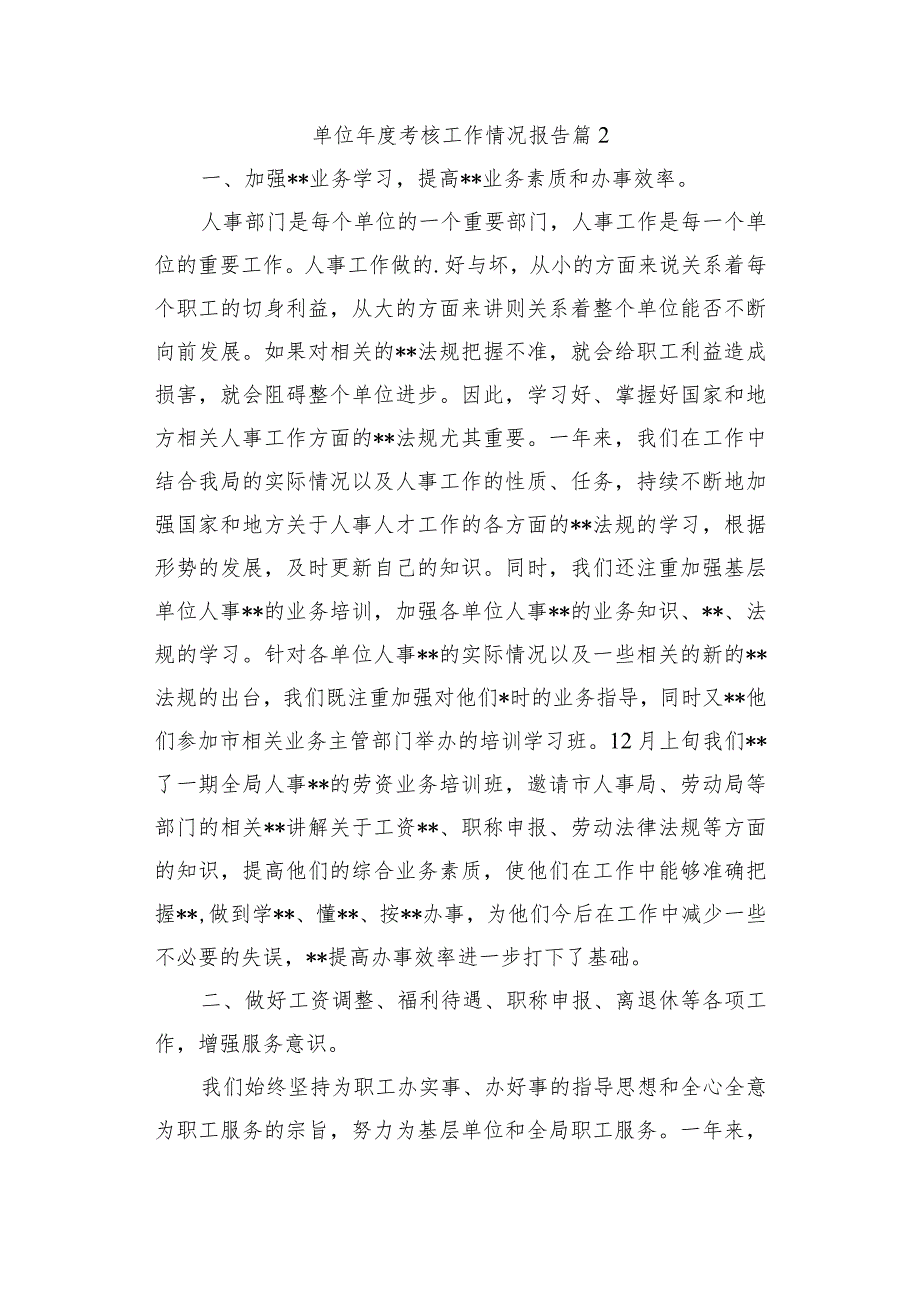 单位年度考核工作情况报告篇2
一、加强**业务学习，提高**业务素质和办事效率。
人事部门是每个单位的一个重要部门，人事工作是每一个单
位的重要工作。人事工作做的.好与坏，从小的方面来说关系着每
个职工的切身利益，从大的方面来讲则关系着整个单位能否不断
向前发展。如果对相关的**法规把握不准，就会给职工利益造成
损害，就会阻碍整个单位进步。因此，学习好、掌握好国家和地
方相关人事工作方面的**法规尤其重要。一年来，我们在工作中
结合我局的实际情况以及人事工作的性质、任务，持续不断地加
强国家和地方关于人事人才工作的各方面的**法规的学习，根据
形势的发展，及时更新自己的知识。同时，我们还注重加强基层
单位人事**的业务培训，加强各单位人事**的业务知识、**、法
规的学习。针对各单位人事**的实际情况以及一些相关的新的**
法规的出台，我们既注重加强对他们*时的业务指导，同时又**他
们参加市相关业务主管部门举办的培训学习班。12月上旬我们**
了一期全局人事**的劳资业务培训班，邀请市人事局、劳动局等
部门的相关**讲解关于工资**、职称申报、劳动法律法规等方面
的知识，提高他们的综合业务素质，使他们在工作中能够准确把
握**,做到学**、懂**、按**办事，为他们今后在工作中减少一些
不必要的失误，**提高办事效率进一步打下了基础。
二、做好工资调整、福利待遇、职称申报、离退休等各项工
作，增强服务意识。
我们始终坚持为职工办实事、办好事的指导思想和全心全意
为职工服务的宗旨，努力为基层单位和全局职工服务。一年来，